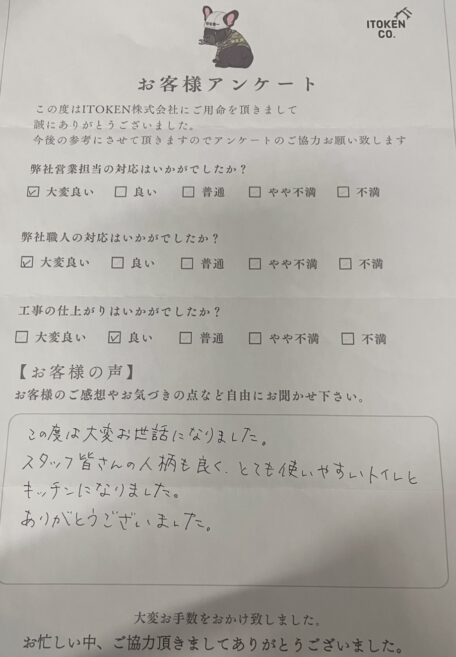 ITOKEN
CO.
お客様アンケート
この度はITOKEN株式会社にご用命を頂きまして
誠にありがとうございました。
今後の参考にさせて頂きますのでアンケートのご協力お願い致します
弊社営業担当の対応はいかがでしたか？
☑ 大変良い □ 良い □ 普通 □ やや不満 □ 不満
弊社職人の対応はいかがでしたか？
☑ 大変良い □ 良い □ 普通 □ やや不満 □ 不満
工事の仕上がりはいかがでしたか？
□ 大変良い ☑ 良い □ 普通 □ やや不満 □ 不満
【お客様の声】
お客様のご感想やお気づきの点など自由にお聞かせ下さい。
この度は大変お世話になりました。
スタッフ皆さんの人柄も良く、とても使いやすいトイレと
キッチンになりました。
ありがとうございました。
大変お手数をおかけ致しました。
お忙しい中、ご協力頂きましてありがとうございました。